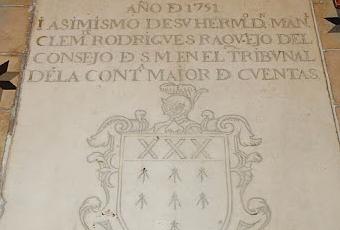 AÑO Ð 1751
IASIMISMO DE SU HERM.º D.N MAN.L
CLEM.E RODRIGUES RAQUEJO DEL
CONSEJO Ð S M EN EL TRIBUNAL
DE LA CONT.A MAIOR Ð CUENTAS
XXX